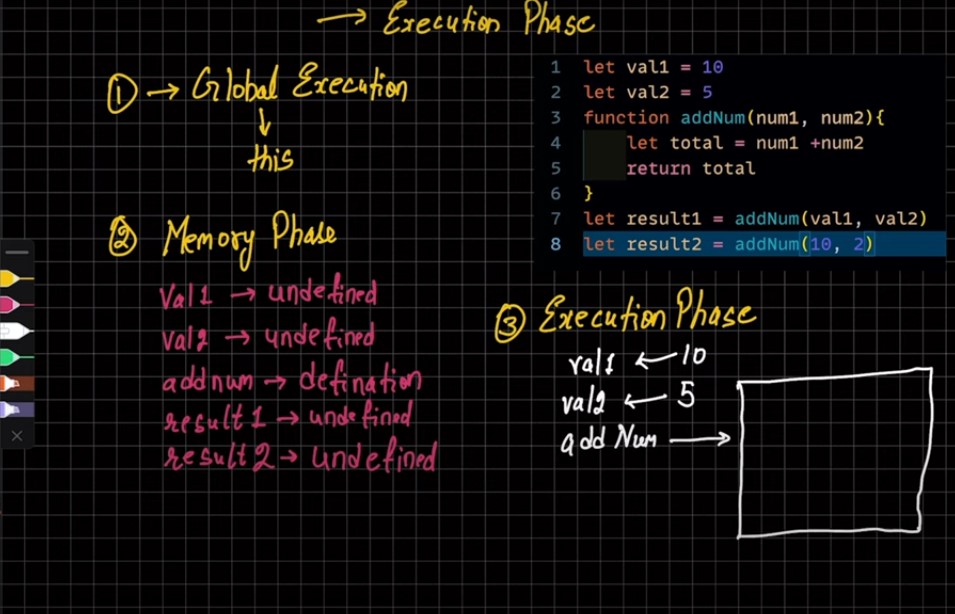 → Execution Phase
① → Global Execution
↓
this
② Memory Phase
Val1 → undefined
val2 → undefined
addnum → defination
result1 → undefined
result2 → undefined
1 let val1 = 10
2 let val2 = 5
3 function addNum(num1, num2){
4 let total = num1 +num2
5 return total
6 }
7 let result1 = addNum(val1, val2)
8 let result2 = addNum(10, 2)
③ Execution Phase
val1 ← 10
val2 ← 5
add Num →